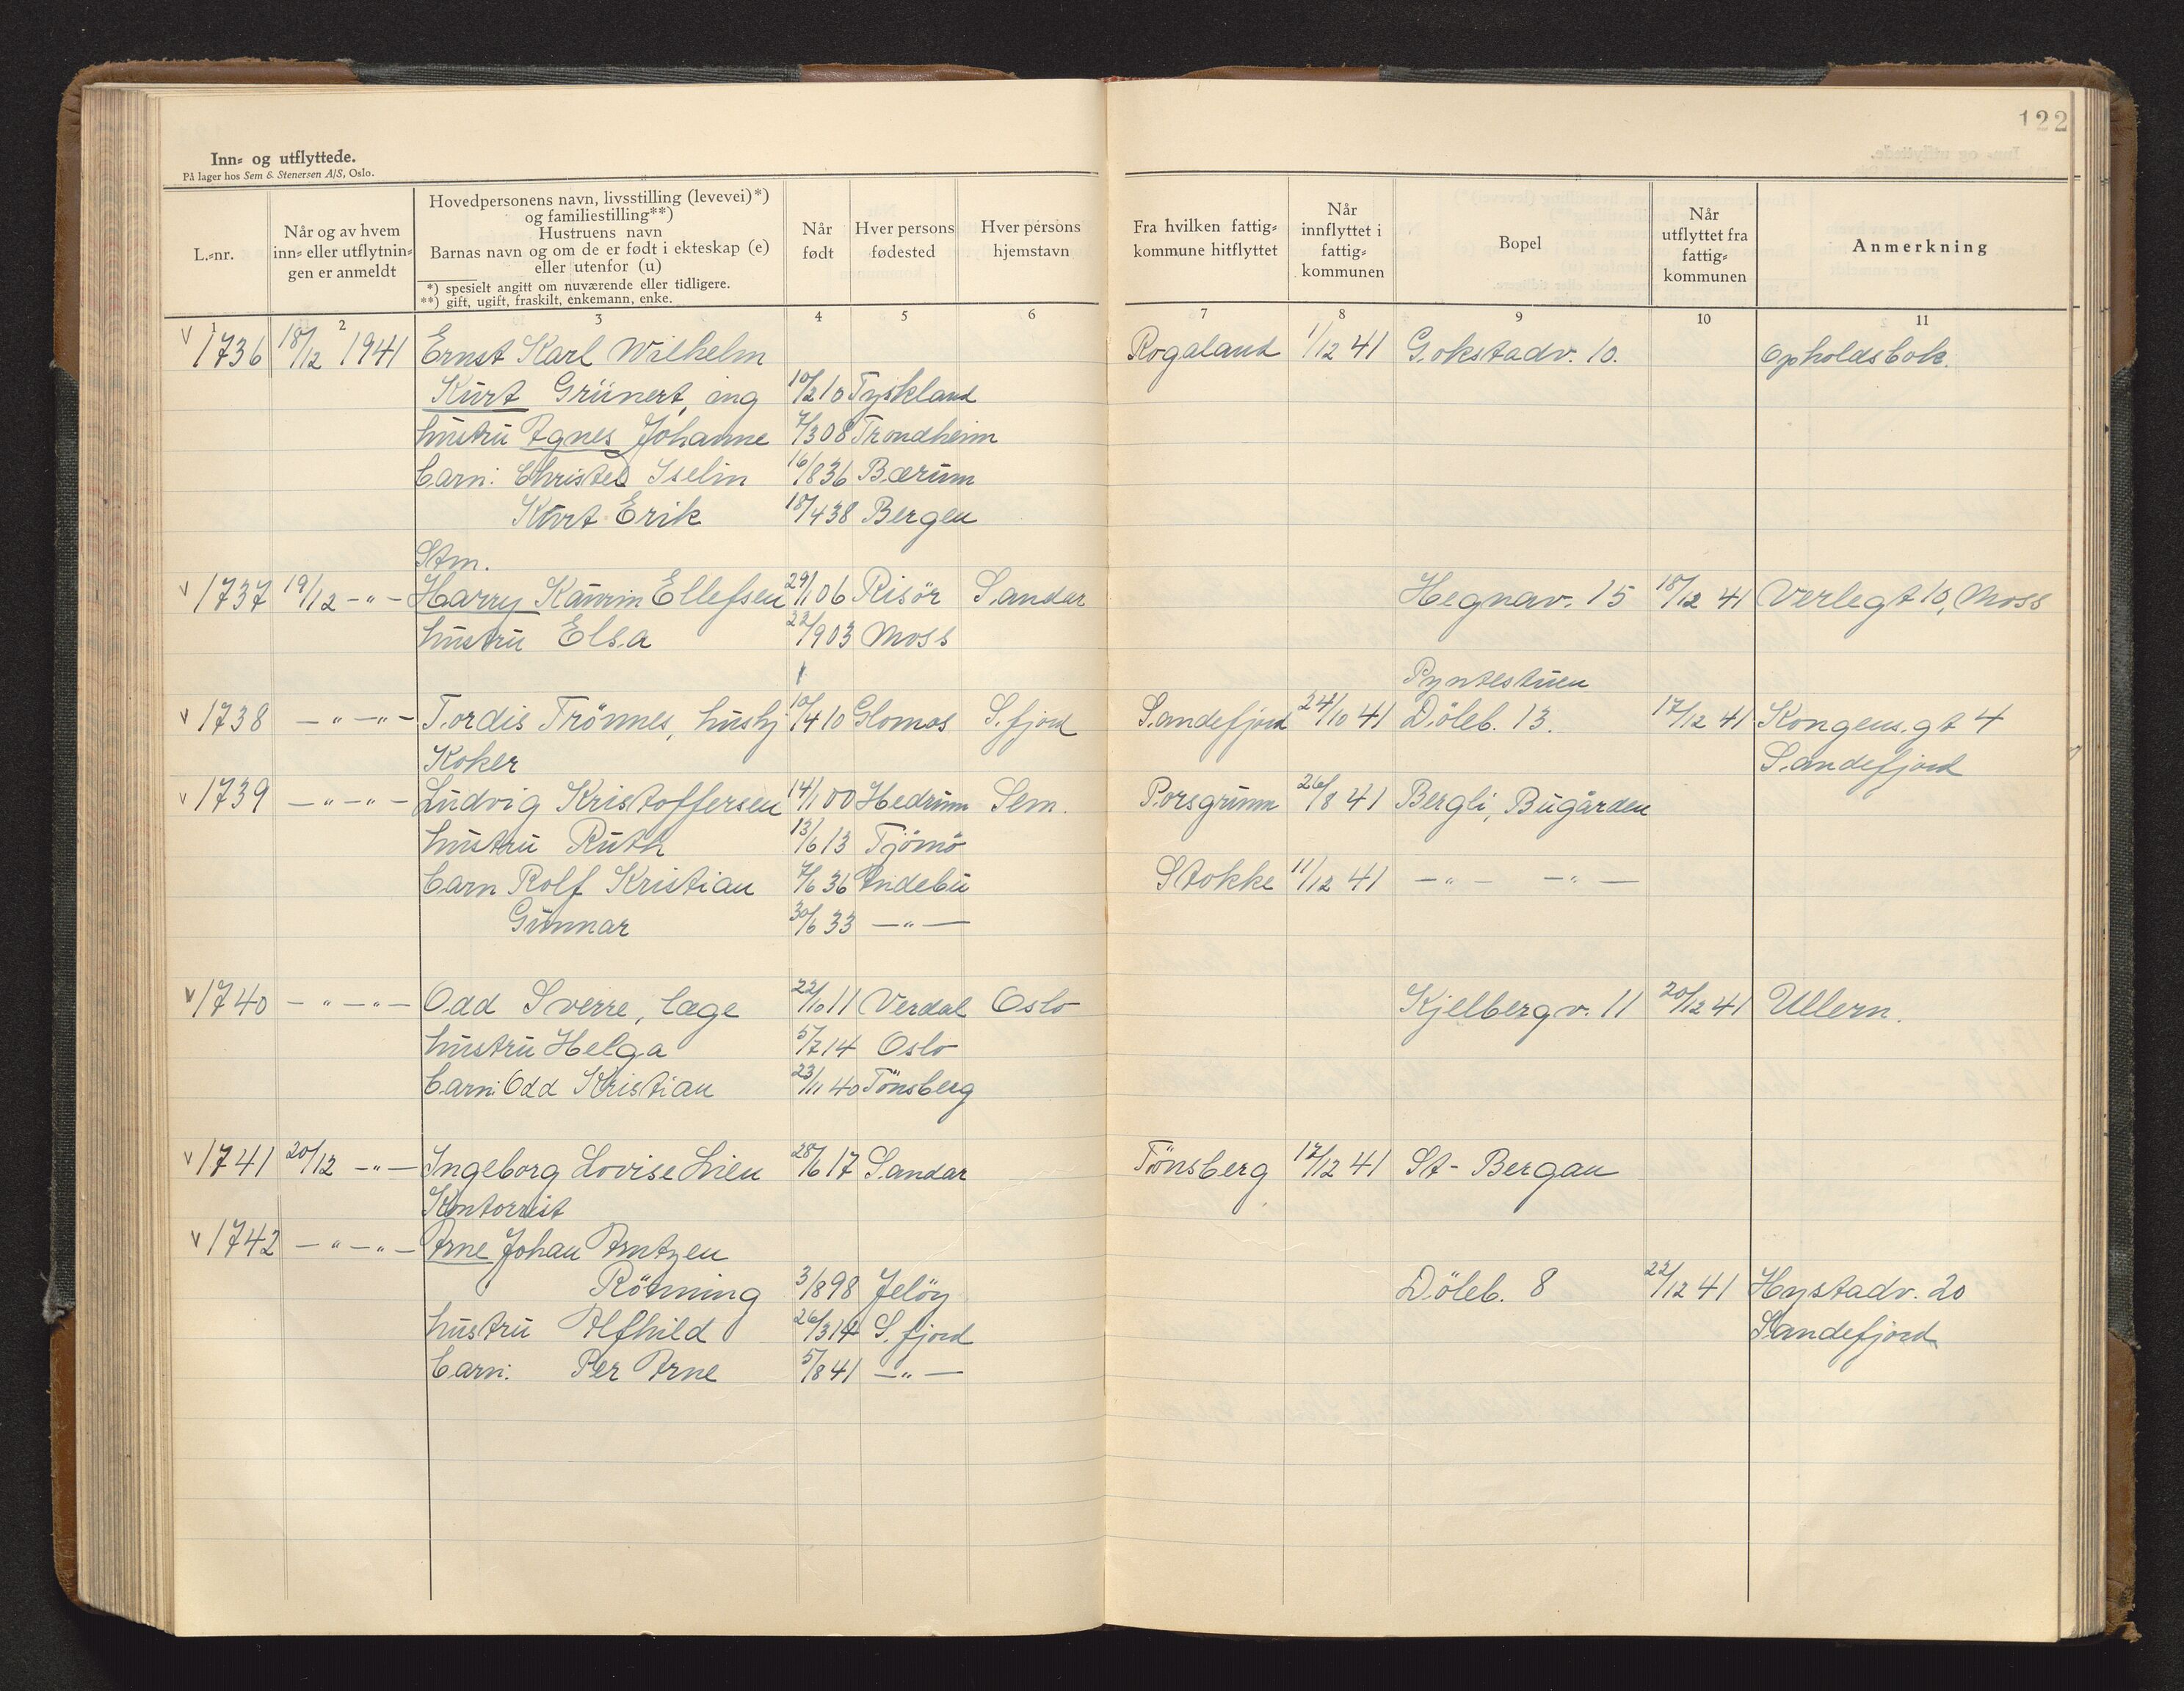 122
Inn- og utflyttede.
På lager hos Sem & Stenersen A/S, Oslo.
L.-nr.
Når og av hvem inn- eller utflytnin- gen er anmeldt
Hovedpersonens navn, livsstilling (levevei)*)
og familiestilling**)
Hustruens navn
Barnas navn og om de er født i ekteskap (e)
eller utenfor (u)
*) spesielt angitt om nuværende eller tidligere.
**) gift, ugift, fraskilt, enkemann, enke.
Når født
Hver persons fødested
Hver persons hjemstavn
Fra hvilken fattig- kommune hitflyttet
Når innflyttet i fattig- kommunen
Bopel
Når utflyttet fra fattig- kommunen
Anmerkning
1 2 3 4 5 6 7 8 9 10 11
v 1736 18/12 1941 Ernst Karl Wilhelm Rogaland 1/12 41 Gokstadv. 10. Opholdsbok.
Kurt Grünert, ing 10/2 10 Tyskland
hustru Agnes Johanne 7/3 08 Trondheim
barn: Christel Iselin 16/8 36 Bærum
Kurt Erik 18/4 38 Bergen
Stm.
v 1737 19/12 -"- Harry Ellefsen 29/1 06 Risör Sandar Hegnav. 15 18/12 41 Verlegt 10, Moss
hustru Elsa 22/9 03 Moss
Pyntestuen
v 1738 -"-"- Tordis Trönnes, hushj 10/4 10 Glomos S.fjord Sandefjord 24/10 41 Döleb. 13. 17/12 41 Kongens. gt 4
Koker Sandefjord
v 1739 -"-"- Ludvig Kristoffersen 14/1 00 Hedrum Sem. Porsgrunn 26/8 41 Bergli, Bugården
hustru Ruth 13/6 13 Tjömö
barn Rolf Kristian 7/6 36 Andebu Stokke 11/12 41 -"- -"-
Gunnar 30/6 33 -"-
v 1740 -"-"- Odd Sverre, læge 22/10 11 Verdal Oslo Kjelbergv. 11 20/12 41 Ullern.
hustru Helga 5/7 14 Oslo
barn: Odd Kristian 23/11 40 Tönsberg
v 1741 20/12 -"- Ingeborg Lovise Lien 28/6 17 Sandar Tönsberg 17/12 41 St- Bergan
Kontorist
v 1742 -"-"- Arne Johan Arntzen
Rönning 3/8 98 Jelöy Döleb. 8 22/12 41 Hystadv. 20
hustru Alfhild 26/3 14 S.fjord Sandefjord
barn: Per Arne 5/8 41 -"-